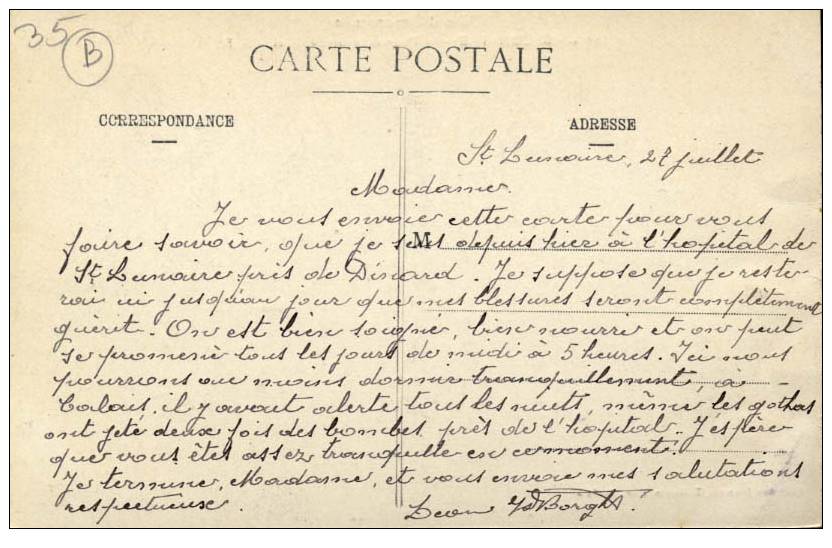 35
B
CARTE POSTALE
CORRESPONDANCE
ADRESSE
St Lunaire, 27 juillet
Madame.
Je vous envoie cette carte pour vous
faire savoir, que je suis depuis hier à l'hopital de
M
St Lunaire près de Dinard. Je suppose que je reste-
rai ici jusqu'au jour que mes blessures seront complètement
guèrit. On est bien soigné, bien nourri et on peut
se promenè tous les jours de midi à 5 heures. Ici nous
pourrons au moins dormir tranquillement, à
Calais, il y avait alerte tous les nuits, même les gothas
ont jeté deux fois des bombes près de l'hopital. J'espère
que vous êtes assez tranquille en ce moment.
Je termine, Madame, et vous envoie mes salutations
respectueuse.
Leon